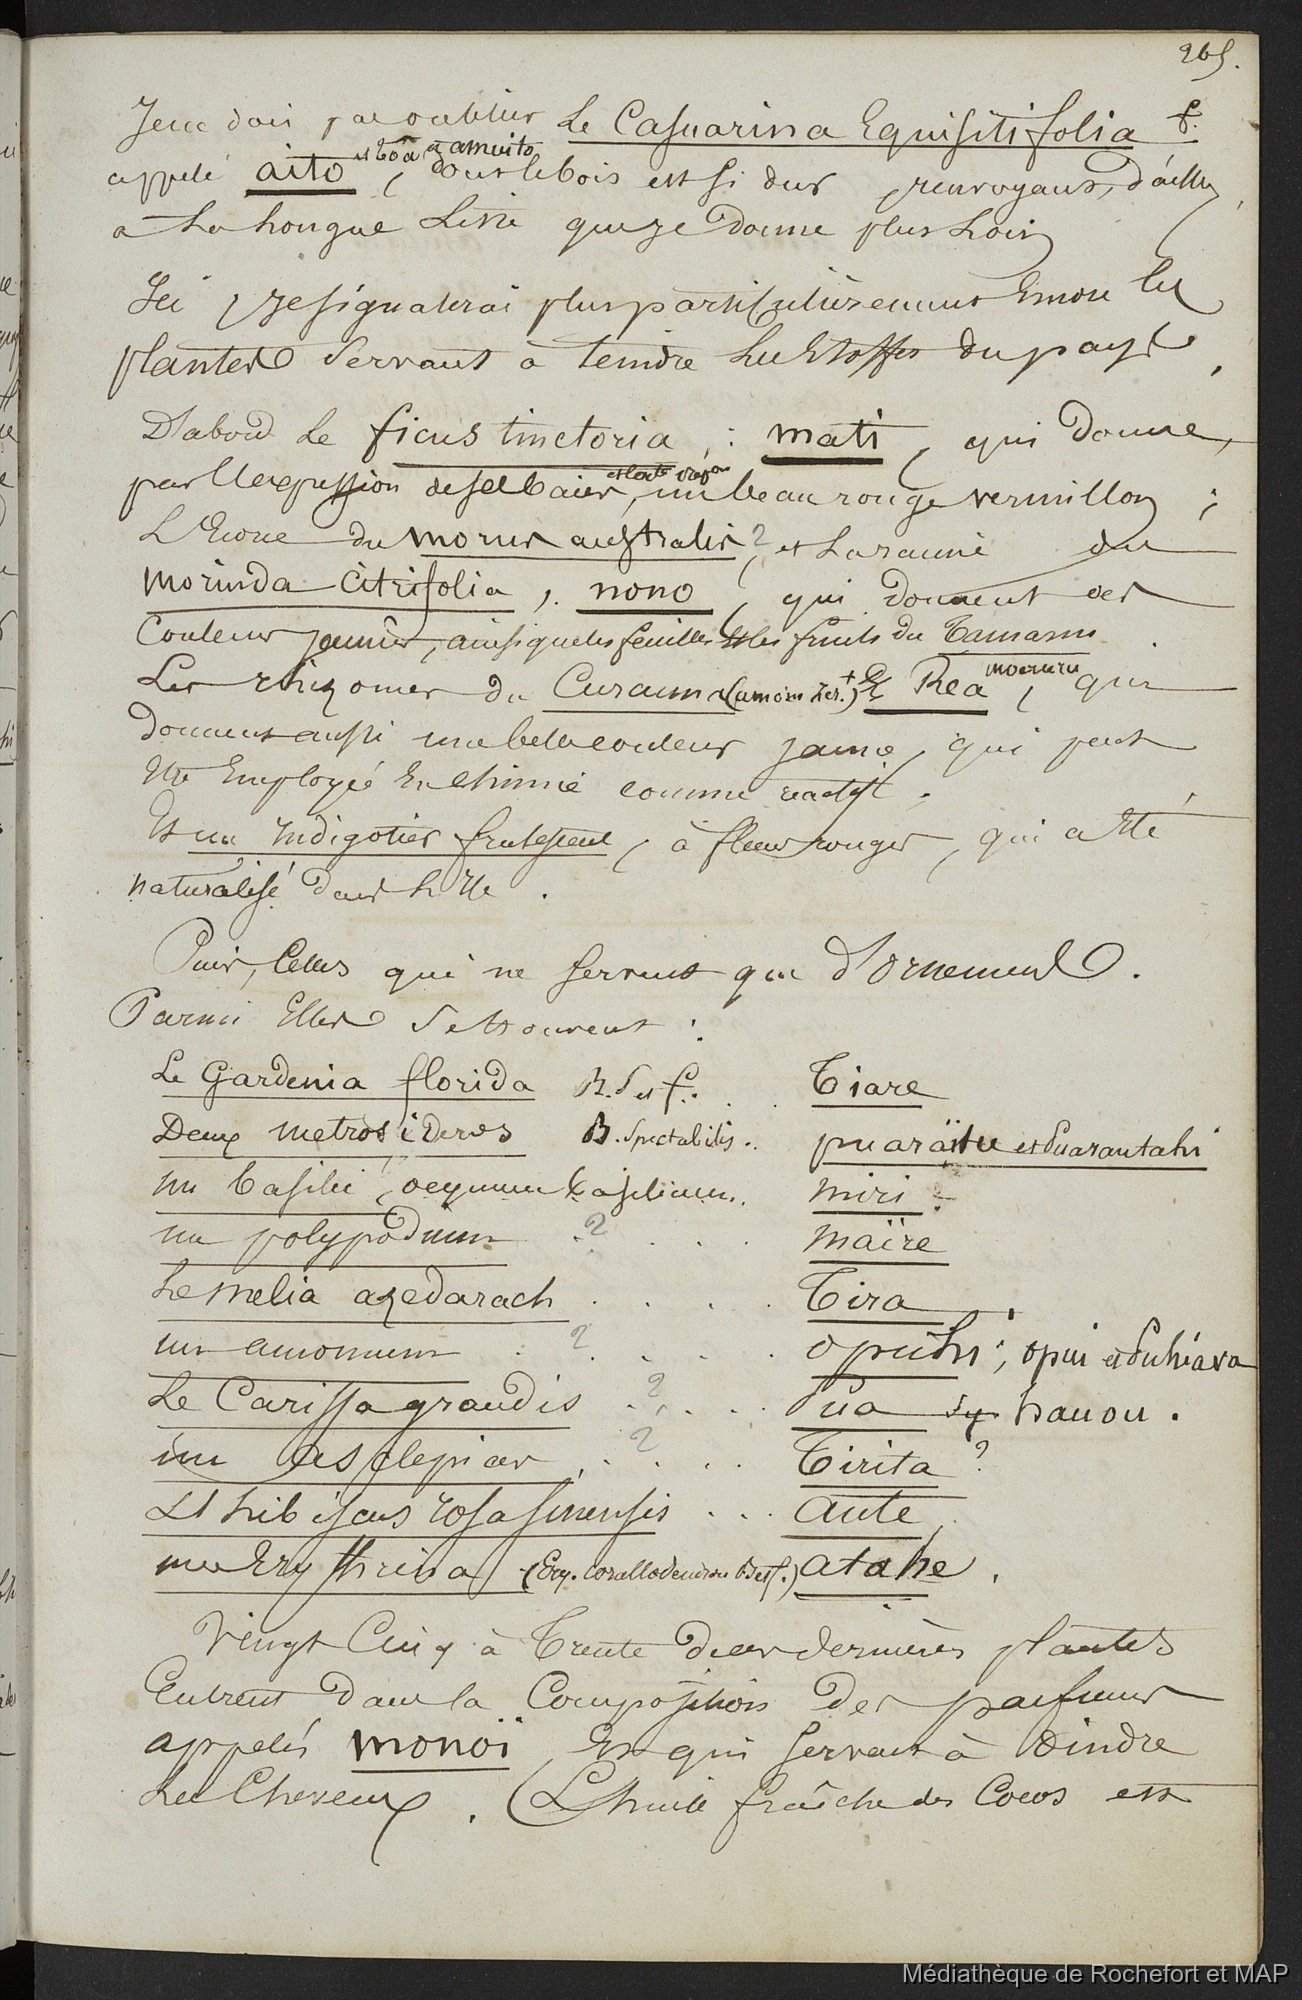 265.
Je ne dois pas oublier Le Casuarina Equisitifolia f.
appelé aito et toa a amuito, dont le bois est si dur, renvoyant, d'ailleurs,
à la longue Liste que je donne plus Loin
Ici, je signalerai plus particulièrement Encore les
plantes Servant à teindre les Etoffes du pays,
D'abord Le ficus tinctoria : mati, qui donne,
par l'expression de ses baies, un beau rouge vermillon ;
L'Ecorce du morus australis ?, et la racine du
morinda citrifolia, nono, qui donnent des
Couleurs jaunes, ainsi que les feuilles et les fruits du Tamanu
Les rhizomes du Curcuma (amom Zer.) + Rea moeruru, qui
donnent aussi une belle couleur jaune, qui peut
être Employée En chimie comme réactif.
Et un indigotier frutescent, à fleurs rouges, qui a été
naturalisé dans l'Ile.
Puis, Celles qui ne servent que d'Ornement.
Parmi Elles Se trouvent :
Le Gardenia florida B. Set f. . . Tiare
Deux metrosideros B. Spectabilis .. puarätu et Puarautahi
un basilic, ocymum basilicum. miri
un polypodium . ? . . . maïre
Le melia azedarach . . . . Tira
un amomum . ? . . . . opuhi ; opui et Puhiava
Le Carissa grandis . ? . . . Pua Sy hauou.
un asclepias . ? . . . Tirita ?
L'hibiscus rosa sinensis . . . aute
une Erythrina (Ery. corallodendron Desf.) atahe.
Vingt Cinq à Trente de ces dernières plantes
Entrent dans la Composition des parfums
appelés monoï, Et qui servent à oindre
les Cheveux. (L'huile fraîche des Cocos est
Médiathèque de Rochefort et MAP